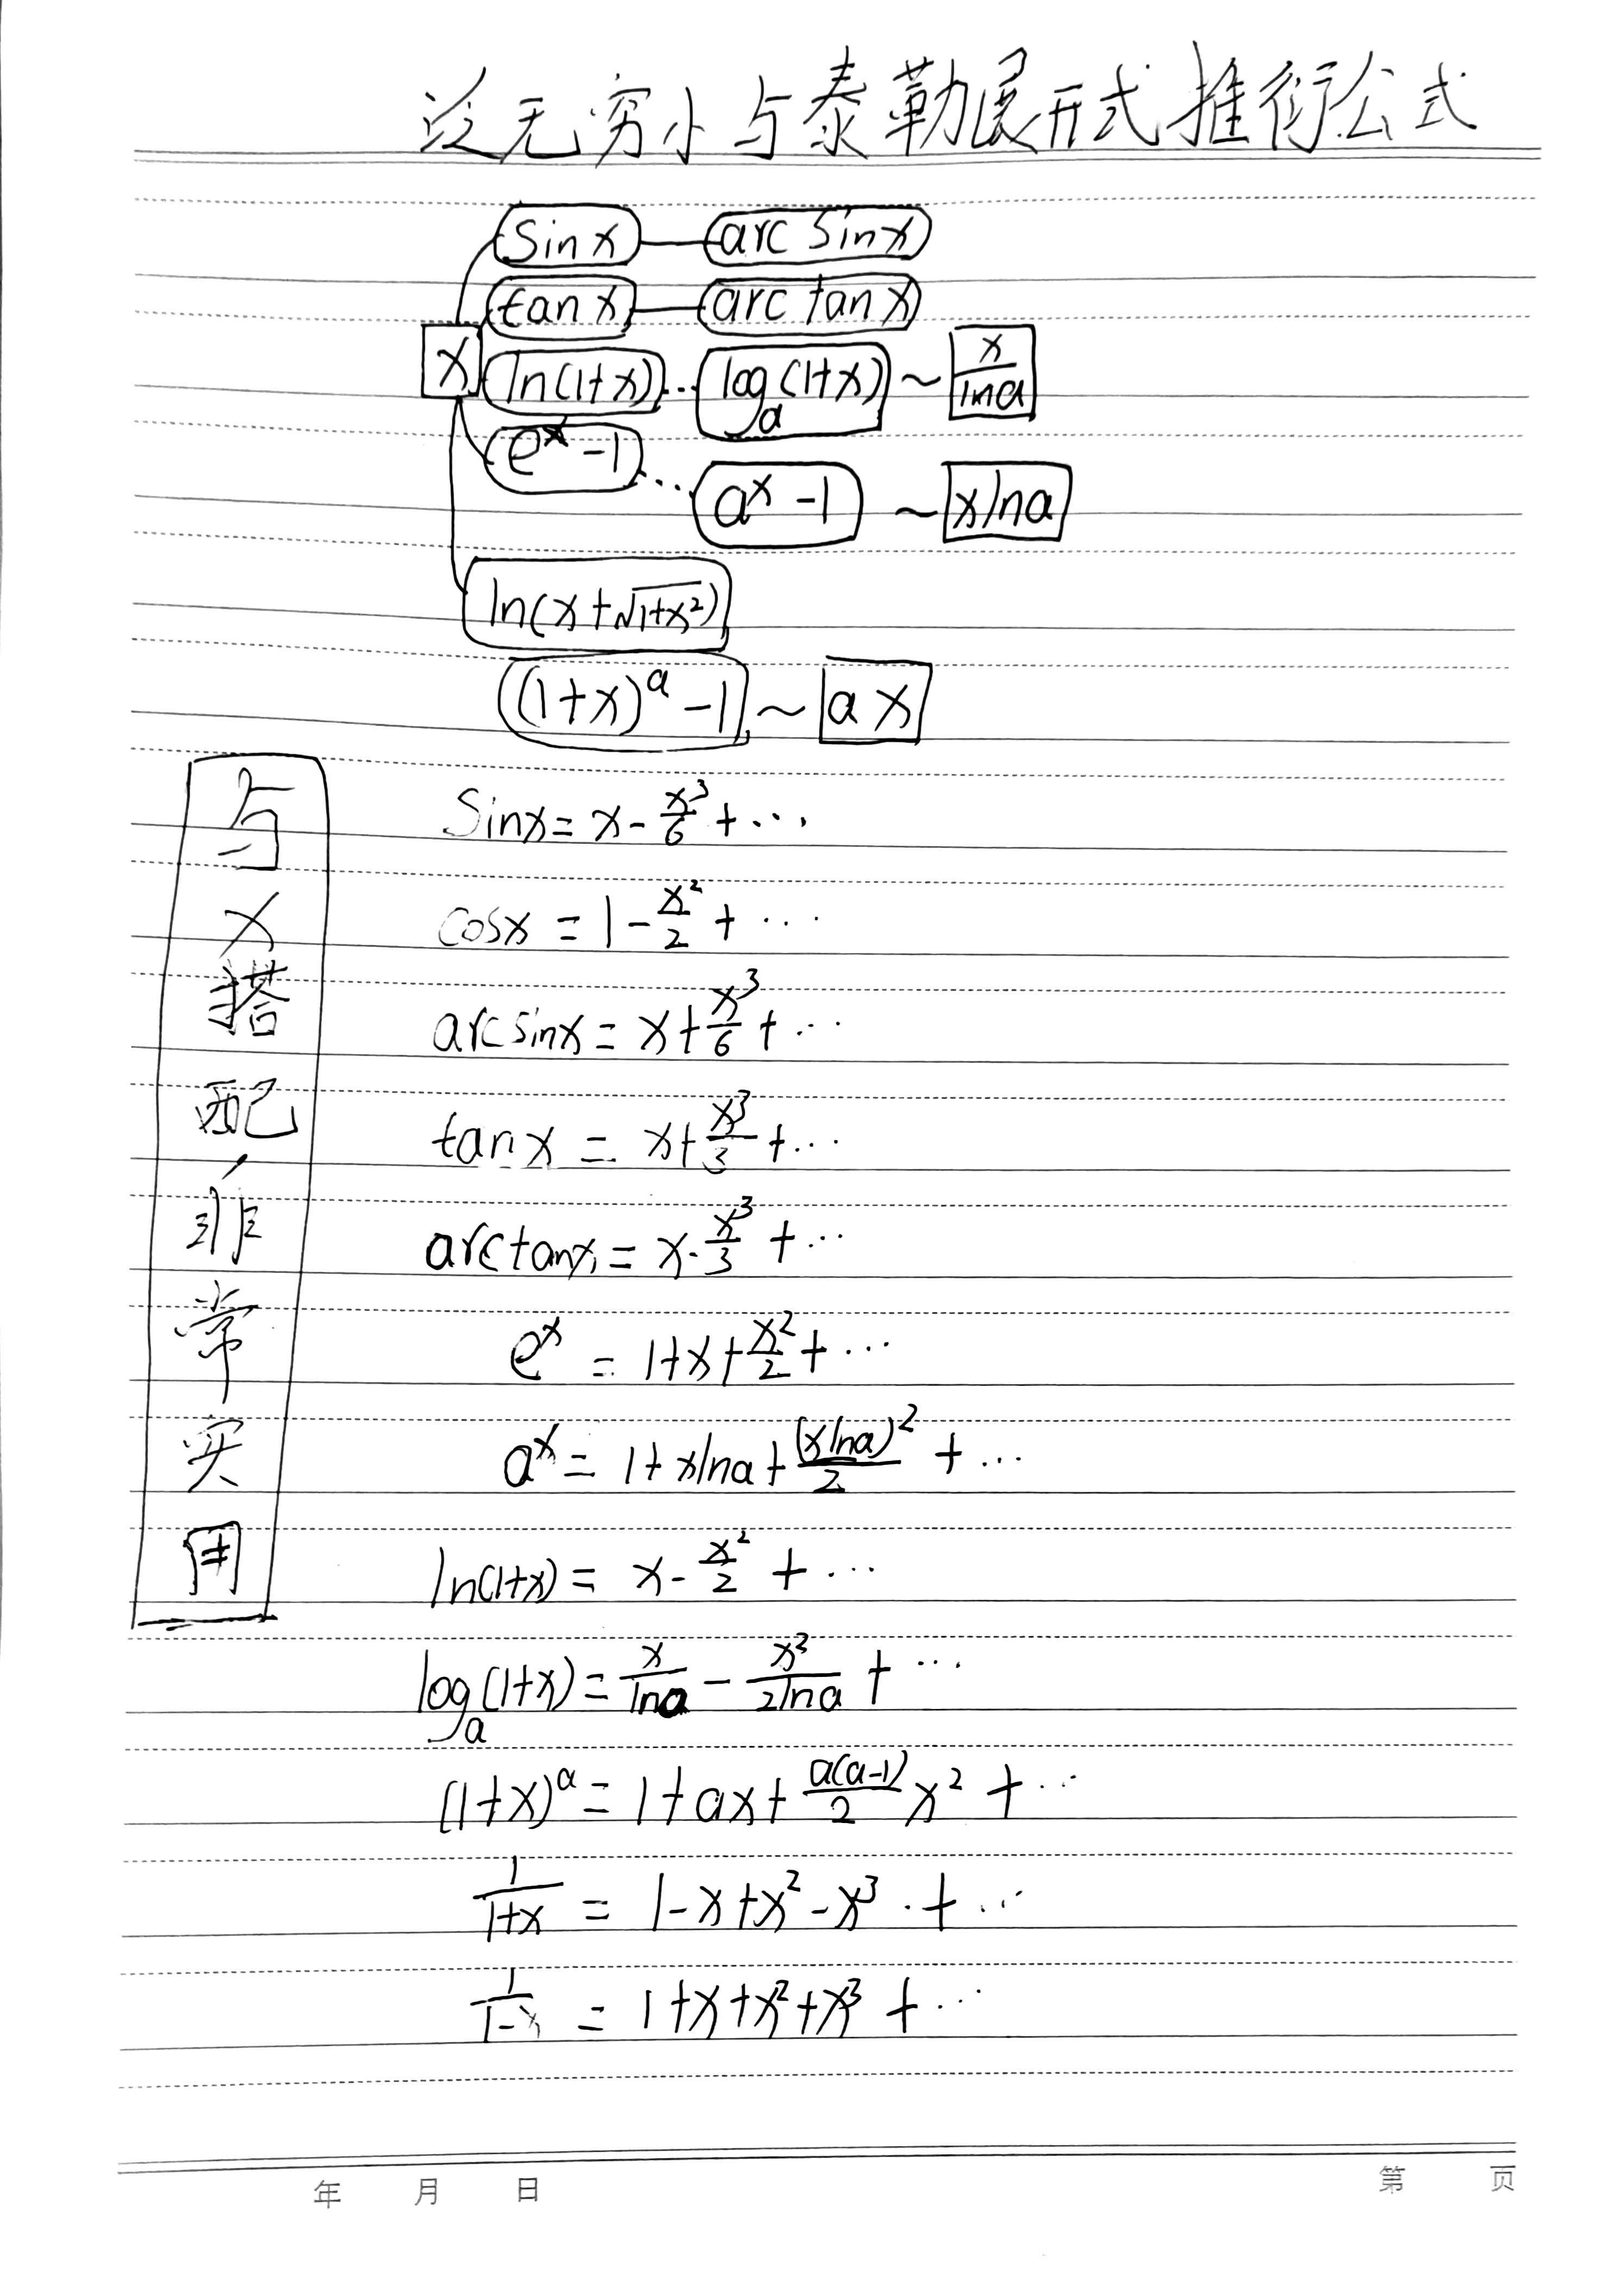 论无穷小与泰勒展开式推衍公式
sin x — arc sin x
tan x — arc tan x
x
ln(1+x) … log_a(1+x) ~ x/lna
e^x -1 … a^x -1 ~ xlna
ln(x+√(1+x²))
(1+x)^a -1 ~ ax
与x搭配非常实用
sinx = x - x³/6 + …
cosx = 1 - x²/2 + …
arcsinx = x + x³/6 + …
tanx = x + x³/3 + …
arctanx = x - x³/3 + …
e^x = 1+x+x²/2 + …
a^x = 1+xlna+(xlna)²/2 + …
ln(1+x) = x - x²/2 + …
log_a(1+x) = x/lna - x²/2lna + …
(1+x)^a = 1+ax+a(a-1)/2 x² + …
1/(1+x) = 1-x+x²-x³ + …
1/(1-x) = 1+x+x²+x³ + …
年 月 日 第 页